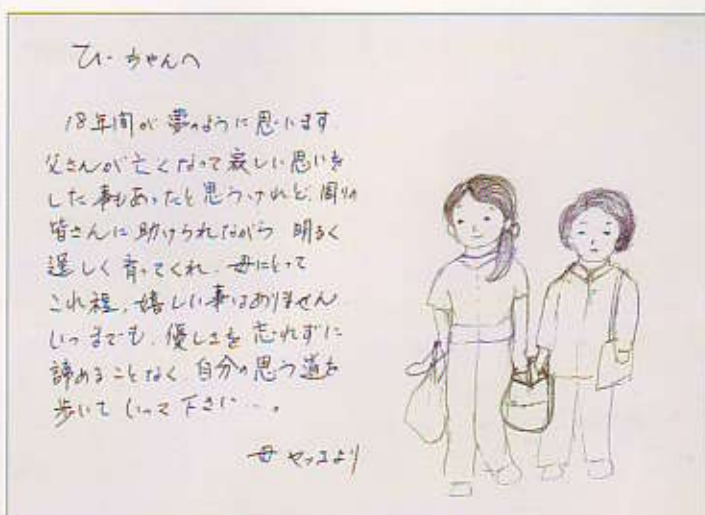 ひーちゃんへ
18年間が夢のように思います
父さんが亡くなって寂しい思いを
した事もあったと思うけれど、周りの
皆さんに助けられながら 明るく
逞しく育ってくれ、母にとって
これ程、嬉しい事はありません
いつまでも、優しさを忘れずに
諦めることなく、自分の思う道を
歩いていって下さい…。
母 ヤツコより